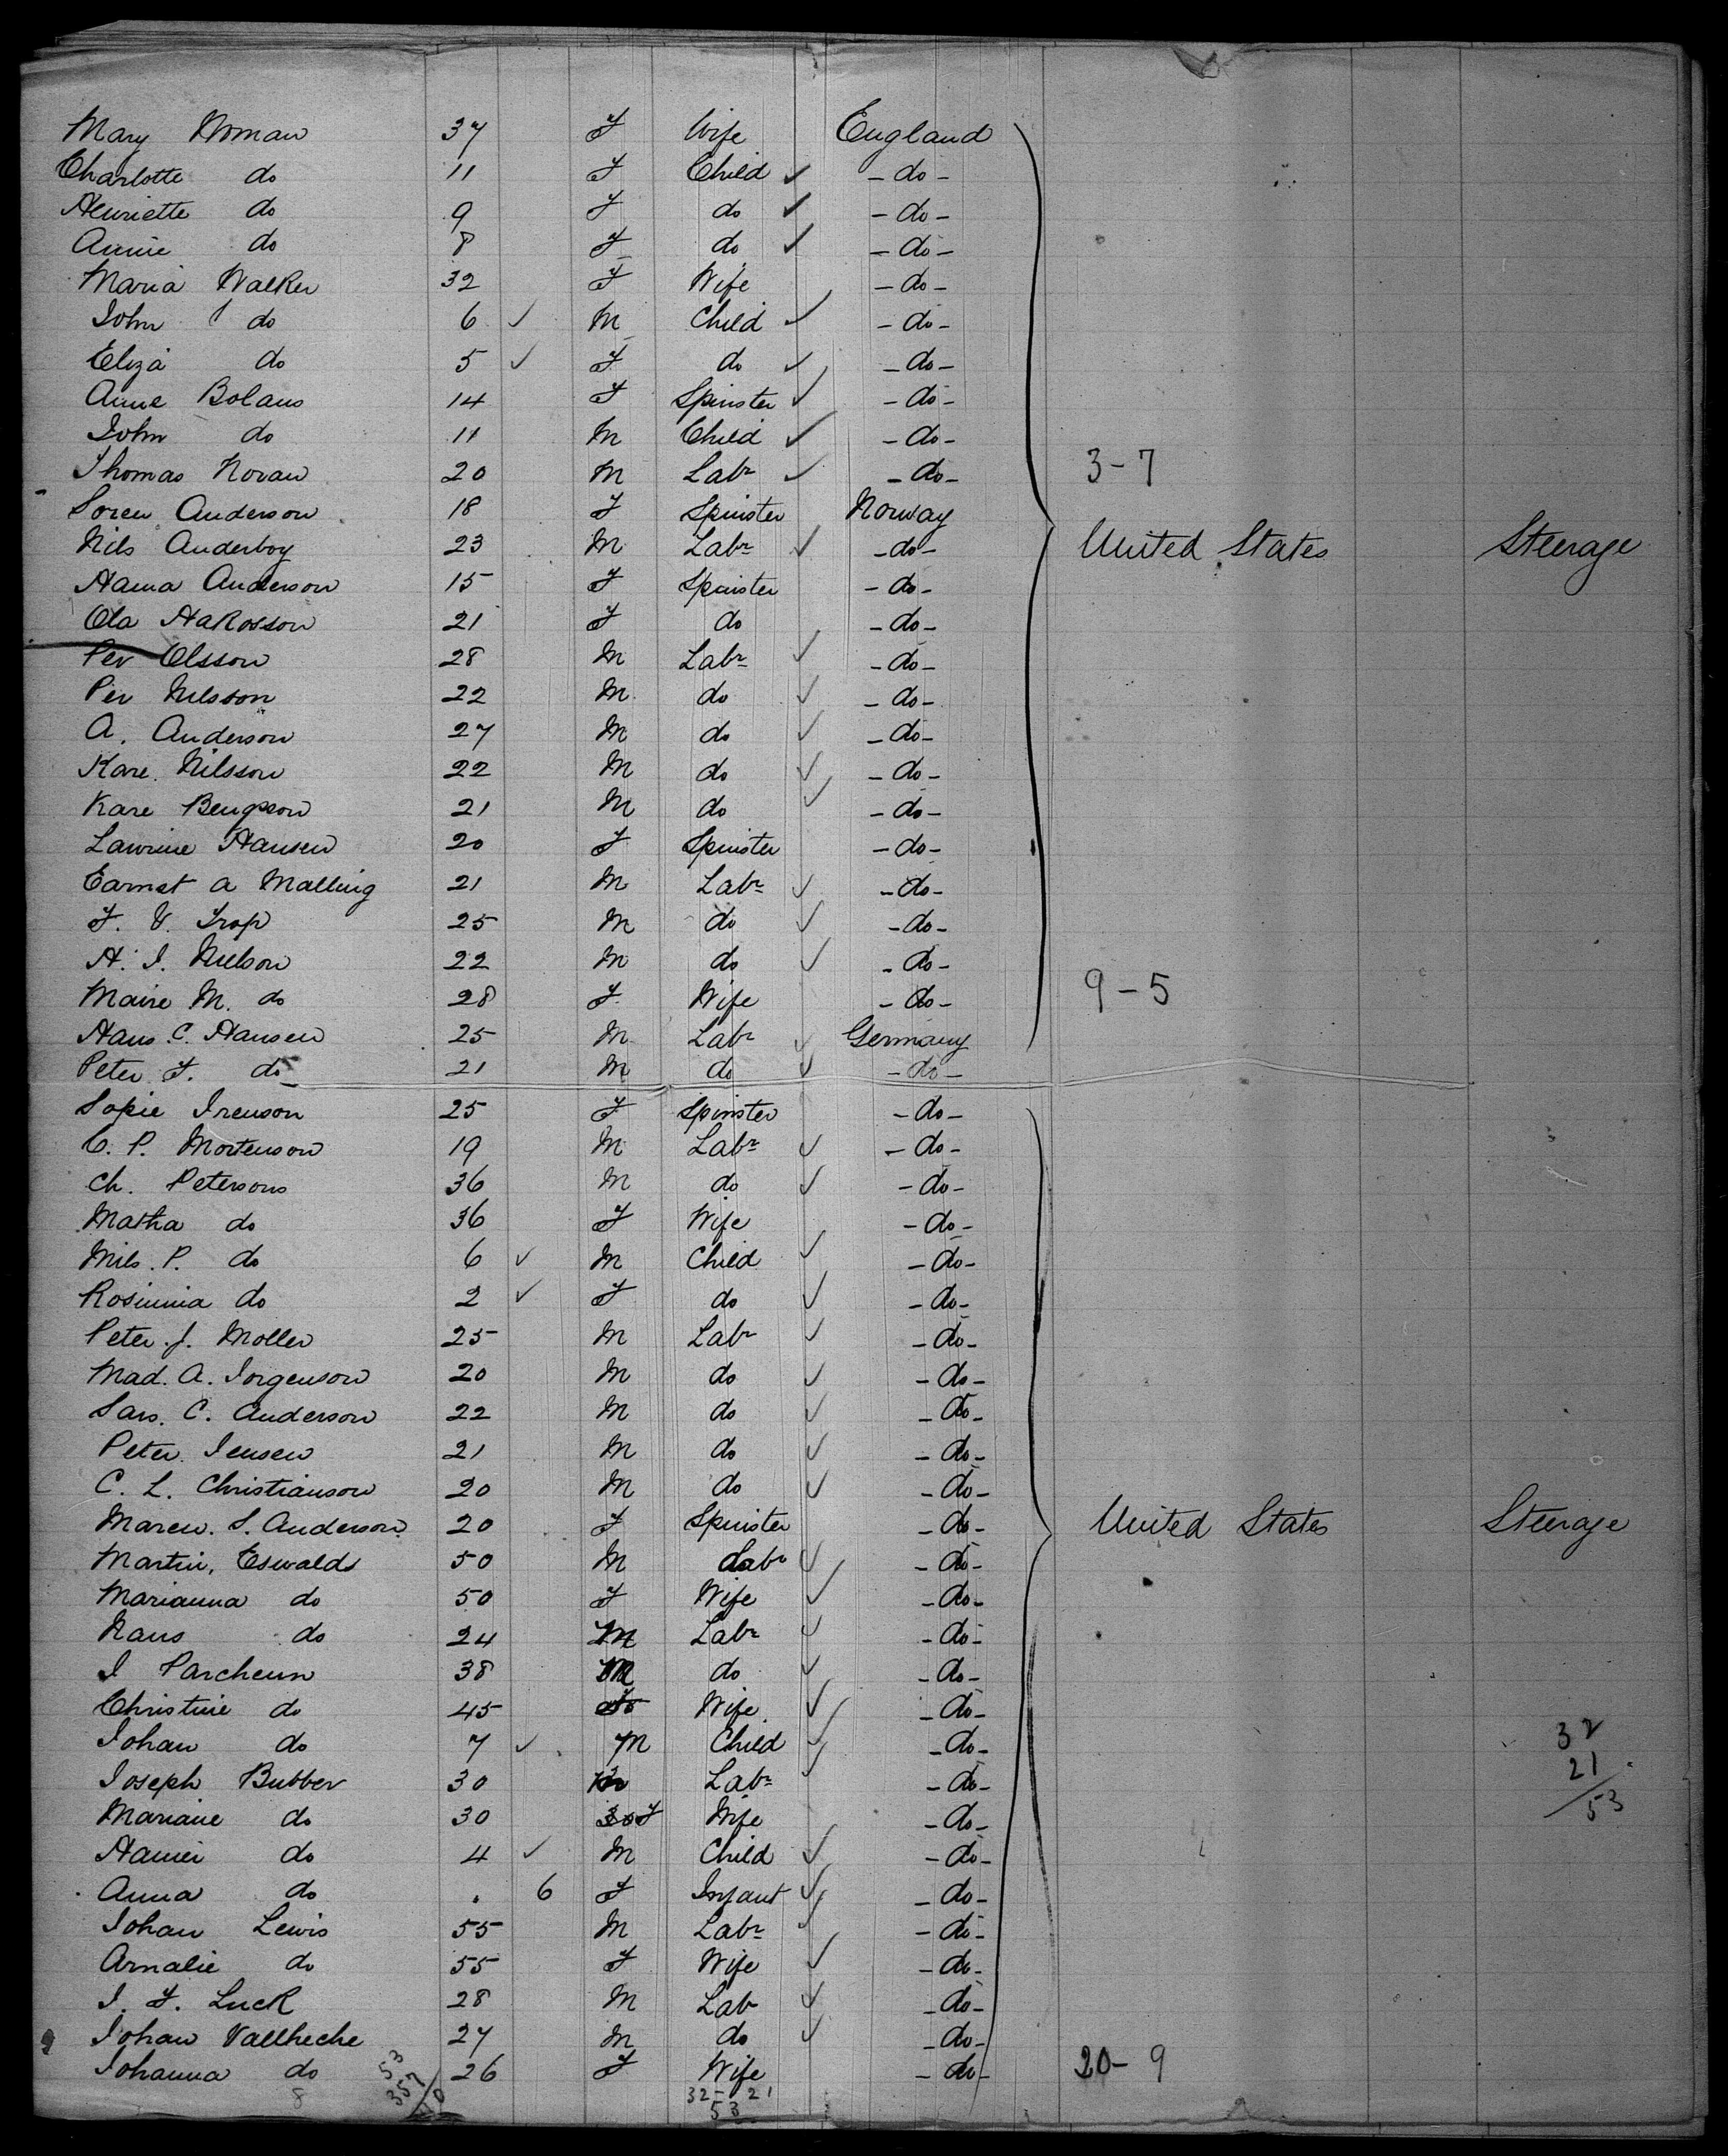 Mary Noman 37 F Wife England
Charlotte do 11 F Child ✓ - do -
Henriette do 9 F do ✓ - do -
Annie do 8 F do ✓ - do -
Maria Walker 32 F Wife - do -
John do 6 ✓ M Child ✓ - do -
Eliza do 5 ✓ F do ✓ - do -
Anne Bolans 14 F Spinster ✓ - do -
John do 11 M Child ✓ - do -
Thomas Noran 20 M Labr ✓ - do - 3-7
Soren Anderson 18 F Spinster Norway
Nils Anderboy 23 M Labr ✓ - do - United States Steerage
Hanna Anderson 15 F Spinster - do -
Ola Hakosson 21 F do - do -
Per Olsson 28 M Labr ✓ - do -
Per Nilsson 22 M do ✓ - do -
A. Anderson 27 M do ✓ - do -
Kare Nilsson 22 M do ✓ - do -
Kare Bengpson 21 M do ✓ - do -
Laurine Hansen 20 F Spinster - do -
Earnst A Malling 21 M Labr ✓ - do -
F. V. Trop 25 M do ✓ - do -
H. I. Nielson 22 M do ✓ - do -
Maire M. do 28 F Wife - do - 9-5
Hans C. Hansen 25 M Labr ✓ Germany
Peter F. do 21 M do ✓ - do -
Sopie Irenson 25 F Spinster - do -
C. P. Mortenson 19 M Labr ✓ - do -
Ch. Petersons 36 M do ✓ - do -
Matha do 36 F Wife - do -
Nils. P. do 6 ✓ M Child ✓ - do -
Rosinnia do 2 ✓ F do ✓ - do -
Peter J. Moller 25 M Labr ✓ - do -
Mad. A. Jorgenson 20 M do ✓ - do -
Lars. C. Anderson 22 M do ✓ - do -
Peter Jensen 21 M do ✓ - do -
C. L. Christianson 20 M do ✓ - do -
Maren. S. Anderson 20 F Spinster - do - United States Steerage
Martin, Eswalds 50 M Labr ✓ - do -
Marianna do 50 F Wife ✓ - do -
Hans do 24 M Labr ✓ - do -
I Parcheun 38 M do ✓ - do -
Christine do 45 F Wife ✓ - do -
Johan do 7 ✓ M Child ✓ - do - 32
Joseph Bubber 30 M Labr ✓ - do - 21
Mariane do 30 F Wife - do - 53
do 4 ✓ M Child ✓ - do -
Anna do . 6 F Infant ✓ - do -
Johan Lewis 55 M Labr ✓ - do -
Amalie do 55 F Wife ✓ - do -
I. F. Luck 28 M Lab ✓ - do -
Johan Vallheche 27 M do ✓ - do -
Johanna do 26 F Wife - do - 20-9
8 53 357 32-21
53